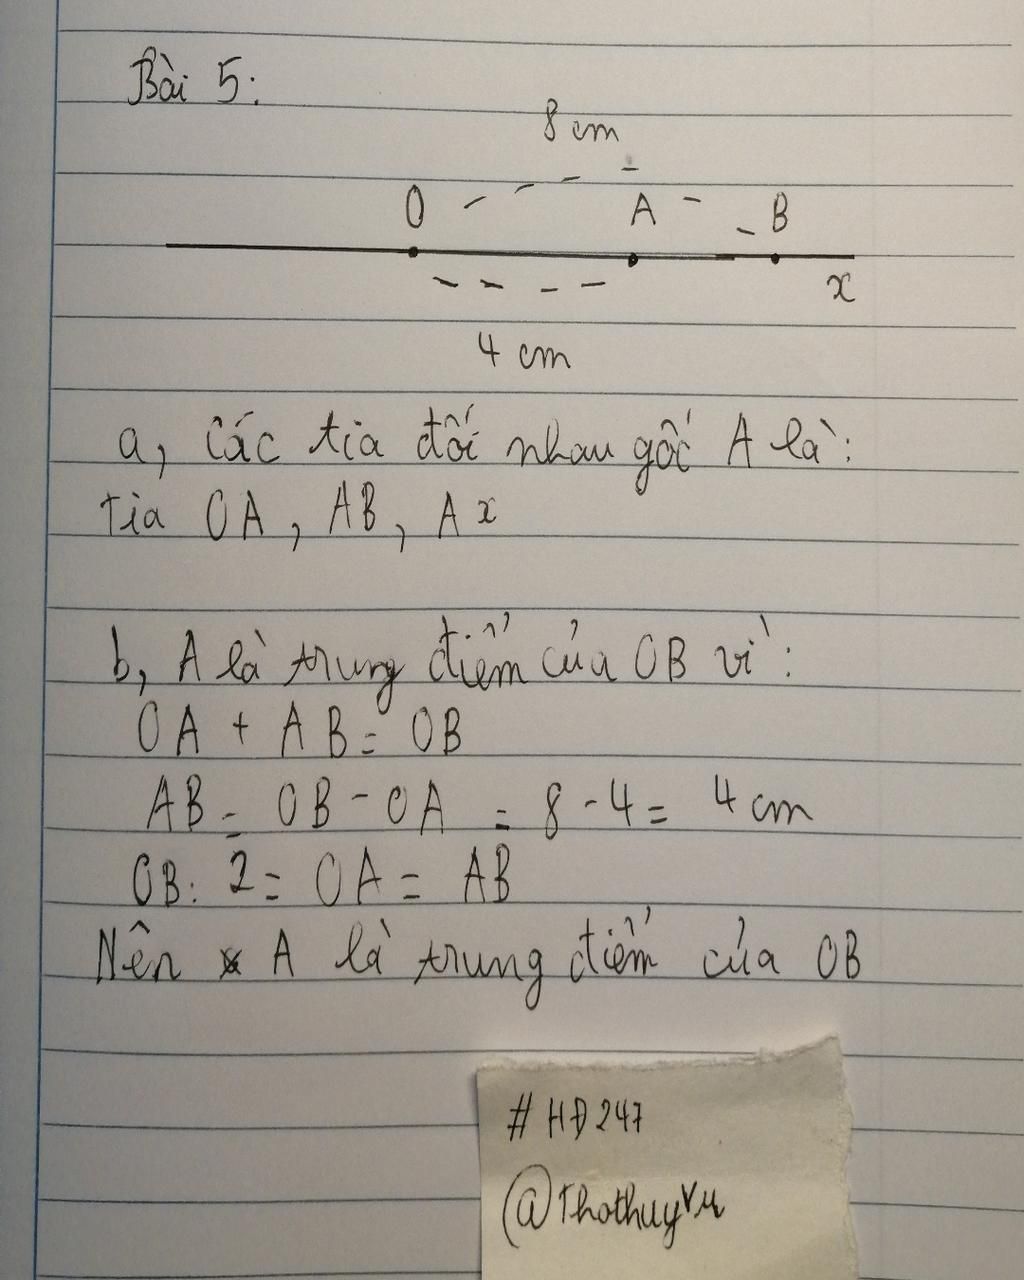 Bài 5:
8 cm
O A B
x
4 cm
a, Các tia đối nhau gốc A là:
tia OA, AB, Ax
b, A là trung điểm của OB vì:
OA + AB = OB
AB = OB - OA = 8 - 4 = 4 cm
OB : 2 = OA = AB
Nên A là trung điểm của OB
# HĐ247
@Thothuyvu